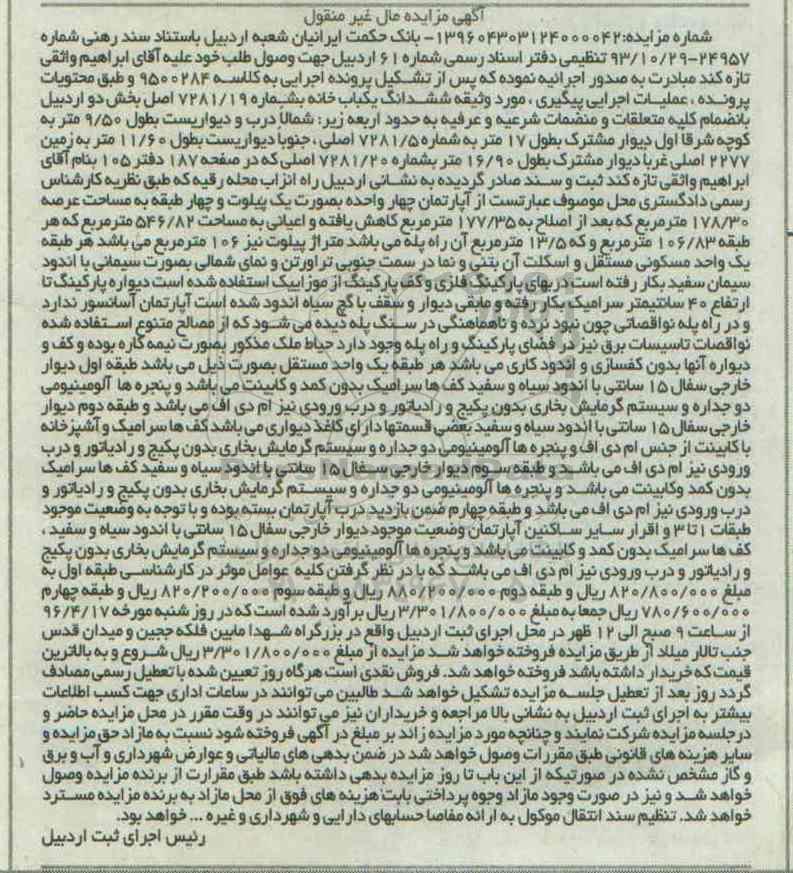 آگهی مزایده مال غیر منقول
شماره مزایده:۱۳۹۶۰۴۳۰۳۱۲۴۰۰۰۰۴۲- بانک حکمت ایرانیان شعبه اردبیل باستناد سند رهنی شماره
۲۴۹۵۷-۹۳/۱۰/۲۹ تنظیمی دفتر اسناد رسمی شماره ۶۱ اردبیل جهت وصول طلب خود علیه آقای ابراهیم واثقی
تازه کند مبادرت به صدور اجرائیه نموده که پس از تشکیل پرونده اجرایی به کلاسه ۹۵۰۰۲۸۴ و طبق محتویات
پرونده ، عملیات اجرایی پیگیری ، مورد وثیقه ششدانگ یکباب خانه بشماره ۷۲۸۱/۱۹ اصل بخش دو اردبیل
بانضمام کلیه متعلقات و منضمات شرعیه و عرفیه به حدود اربعه زیر: شمالا درب و دیواریست بطول ۹/۵۰ متر به
کوچه شرقا اول دیوار مشترک بطول ۱۷ متر به شماره ۷۲۸۱/۵ اصلی ، جنوبا دیواریست بطول ۱۱/۶۰ متر به زمین
۲۲۷۷ اصلی غربا دیوار مشترک بطول ۱۶/۹۰ متر بشماره ۷۲۸۱/۲۰ اصلی که در صفحه ۱۸۷ دفتر ۱۰۵ بنام آقای
ابراهیم واثقی تازه کند ثبت و سند صادر گردیده به نشانی اردبیل راه انزاب محله رقیه که طبق نظریه کارشناس
رسمی دادگستری محل موصوف عبارتست از آپارتمان چهار واحده بصورت یک پیلوت و چهار طبقه به مساحت عرصه
۱۷۸/۳۰ مترمربع که بعد از اصلاح به ۱۷۷/۳۵ مترمربع کاهش یافته و اعیانی به مساحت ۵۴۶/۸۲ مترمربع که هر
طبقه ۱۰۶/۸۳ مترمربع و که ۱۳/۵ مترمربع آن راه پله می باشد متراژ پیلوت نیز ۱۰۶ مترمربع می باشد هر طبقه
یک واحد مسکونی مستقل و اسکلت آن بتنی و نما در سمت جنوبی تراورتن و نمای شمالی بصورت سیمانی با اندود
سیمان سفید بکار رفته است دربهای پارکینگ فلزی و کف پارکینگ از موزاییک استفاده شده است دیواره پارکینگ تا
ارتفاع ۴۰ سانتیمتر سرامیک بکار رفته و مابقی دیوار و سقف با گچ سیاه اندود شده است آپارتمان آسانسور ندارد
و در راه پله نواقصاتی چون نبود نرده و ناهماهنگی در سنگ پله دیده می شود که از مصالح متنوع استفاده شده
نواقصات تاسیسات برق نیز در فضای پارکینگ و راه پله وجود دارد حیاط ملک مذکور بصورت نیمه کاره بوده و کف و
دیواره آنها بدون کفسازی و اندود کاری می باشد هر طبقه یک واحد مستقل بصورت ذیل می باشد طبقه اول دیوار
خارجی سفال ۱۵ سانتی با اندود سیاه و سفید کف ها سرامیک بدون کمد و کابینت می باشد و پنجره ها آلومینیومی
دو جداره و سیستم گرمایش بخاری بدون پکیج و رادیاتور و درب ورودی نیز ام دی اف می باشد و طبقه دوم دیوار
خارجی سفال ۱۵ سانتی با اندود سیاه و سفید بعضی قسمتها دارای کاغذ دیواری می باشد کف ها سرامیک و آشپزخانه
با کابینت از جنس ام دی اف و پنجره ها آلومینیومی دو جداره و سیستم گرمایش بخاری بدون پکیج و رادیاتور و درب
ورودی نیز ام دی اف می باشد و طبقه سوم دیوار خارجی سفال ۱۵ سانتی با اندود سیاه و سفید کف ها سرامیک
بدون کمد وکابینت می باشد و پنجره ها آلومینیومی دو جداره و سیستم گرمایش بخاری بدون پکیج و رادیاتور و
درب ورودی نیز ام دی اف می باشد و طبقه چهارم ضمن بازدید درب آپارتمان بسته بوده و با توجه به وضعیت موجود
طبقات ۱ تا ۳ و اقرار سایر ساکنین آپارتمان وضعیت موجود دیوار خارجی سفال ۱۵ سانتی با اندود سیاه و سفید ،
کف ها سرامیک بدون کمد و کابینت می باشد و پنجره ها آلومینیومی دو جداره و سیستم گرمایش بخاری بدون پکیج
و رادیاتور و درب ورودی نیز ام دی اف می باشد که با در نظر گرفتن کلیه عوامل موثر در کارشناسی طبقه اول به
مبلغ ۸۲۰/۸۰۰/۰۰۰ ریال و طبقه دوم ۸۸۰/۲۰۰/۰۰۰ ریال و طبقه سوم ۸۲۰/۲۰۰/۰۰۰ ریال و طبقه چهارم
۷۸۰/۶۰۰/۰۰۰ ریال جمعا به مبلغ ۳/۳۰۱/۸۰۰/۰۰۰ ریال برآورد شده است که در روز شنبه مورخه ۹۶/۴/۱۷
از ساعت ۹ صبح الی ۱۲ ظهر در محل اجرای ثبت اردبیل واقع در بزرگراه شهدا مابین فلکه ججین و میدان قدس
جنب تالار میلاد از طریق مزایده فروخته خواهد شد مزایده از مبلغ ۳/۳۰۱/۸۰۰/۰۰۰ ریال شروع و به بالاترین
قیمت که خریدار داشته باشد فروخته خواهد شد. فروش نقدی است هرگاه روز تعیین شده با تعطیل رسمی مصادف
گردد روز بعد از تعطیل جلسه مزایده تشکیل خواهد شد طالبین می توانند در ساعات اداری جهت کسب اطلاعات
بیشتر به اجرای ثبت اردبیل به نشانی بالا مراجعه و خریداران نیز می توانند در وقت مقرر در محل مزایده حاضر و
در جلسه مزایده شرکت نمایند و چنانچه مورد مزایده زائد بر مبلغ در آگهی فروخته شود نسبت به مازاد حق مزایده و
سایر هزینه های قانونی طبق مقررات وصول خواهد شد در ضمن بدهی های مالیاتی و عوارض شهرداری و آب و برق
و گاز مشخص نشده در صورتیکه از این باب تا روز مزایده بدهی داشته باشد طبق مقرارت از برنده مزایده وصول
خواهد شد و نیز در صورت وجود مازاد وجوه پرداختی بابت هزینه های فوق از محل مازاد به برنده مزایده مسترد
خواهد شد. تنظیم سند انتقال موکول به ارائه مفاصا حسابهای دارایی و شهرداری و غیره ... خواهد بود.
رئیس اجرای ثبت اردبیل